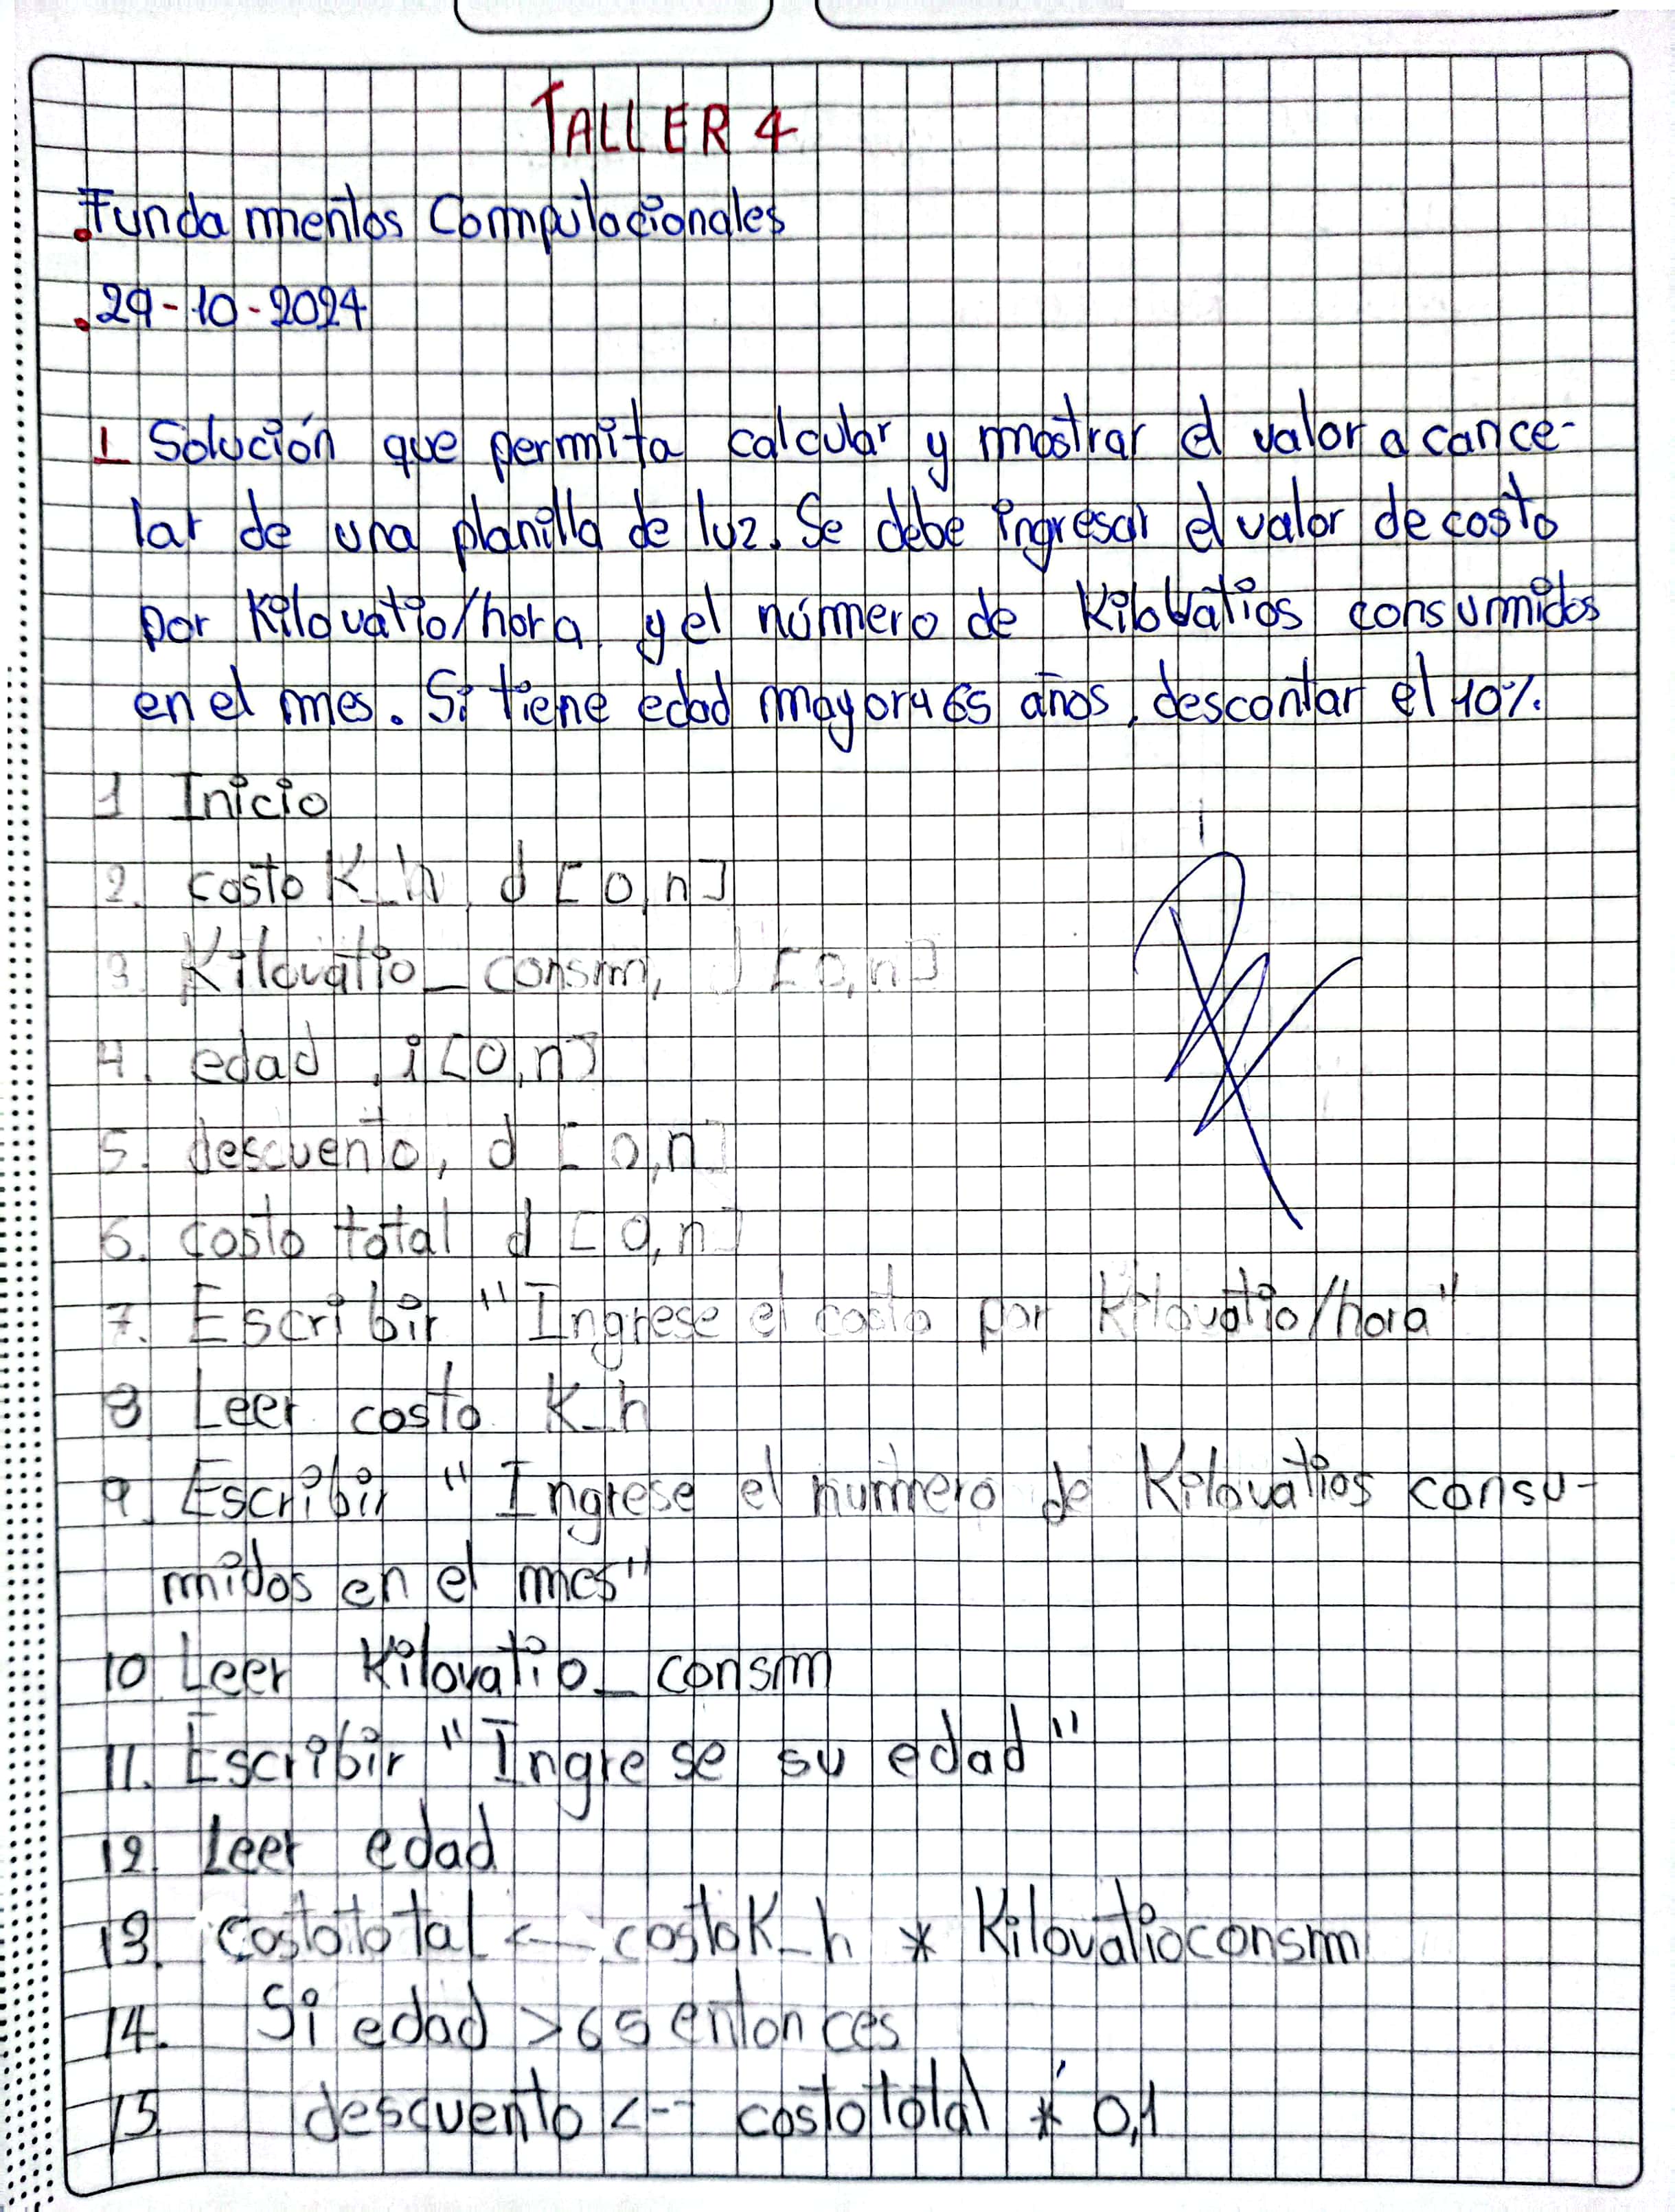 TALLER 4
Fundamentos Computacionales
29-10-2024
1 Solución que permita calcular y mostrar el valor a cance-
lar de una planilla de luz. Se debe ingresar el valor de costo
por Kilovatio/hora y el número de Kilovatios consumidos
en el mes. Si tiene edad mayor a 65 años, descontar el 10%.
1 Inicio
2. costo K_h, d [0,n]
3. Kilovatio_consm, d [0,n]
4. edad, i [0,n]
5. descuento, d [0,n]
6. costo total d [0,n]
7. Escribir "Ingrese el costo por Kilovatio/hora"
8 Leer costo K_h
9. Escribir "Ingrese el numero de Kilovatios consu-
midos en el mes"
10 Leer Kilovatio_consm
11. Escribir "Ingrese su edad"
12. Leer edad
13. costototal <- costoK_h * Kilovatioconsm
14. Si edad > 65 entonces
15. descuento <-- costototal * 0,1